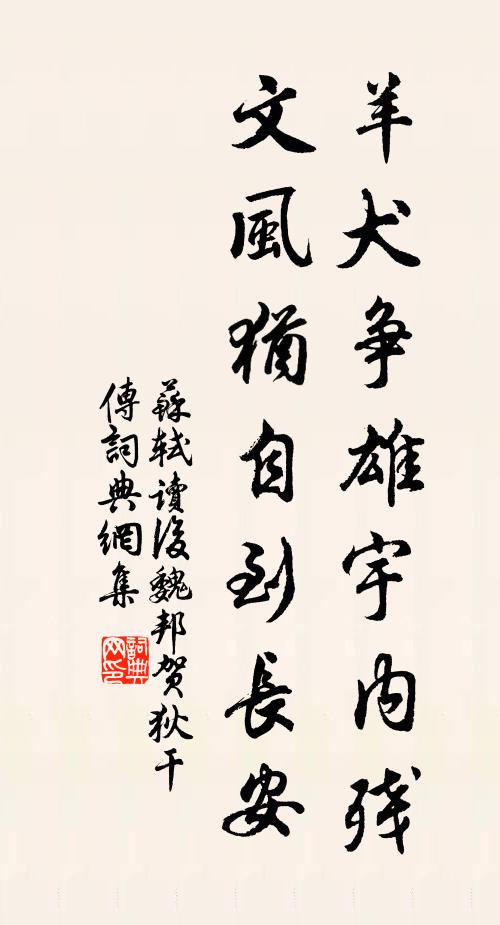 羊犬争雄宇内残
文風猶自到長安
蘇軾讀後魏邦賀狄干
傳詞典網集
詞典
网印